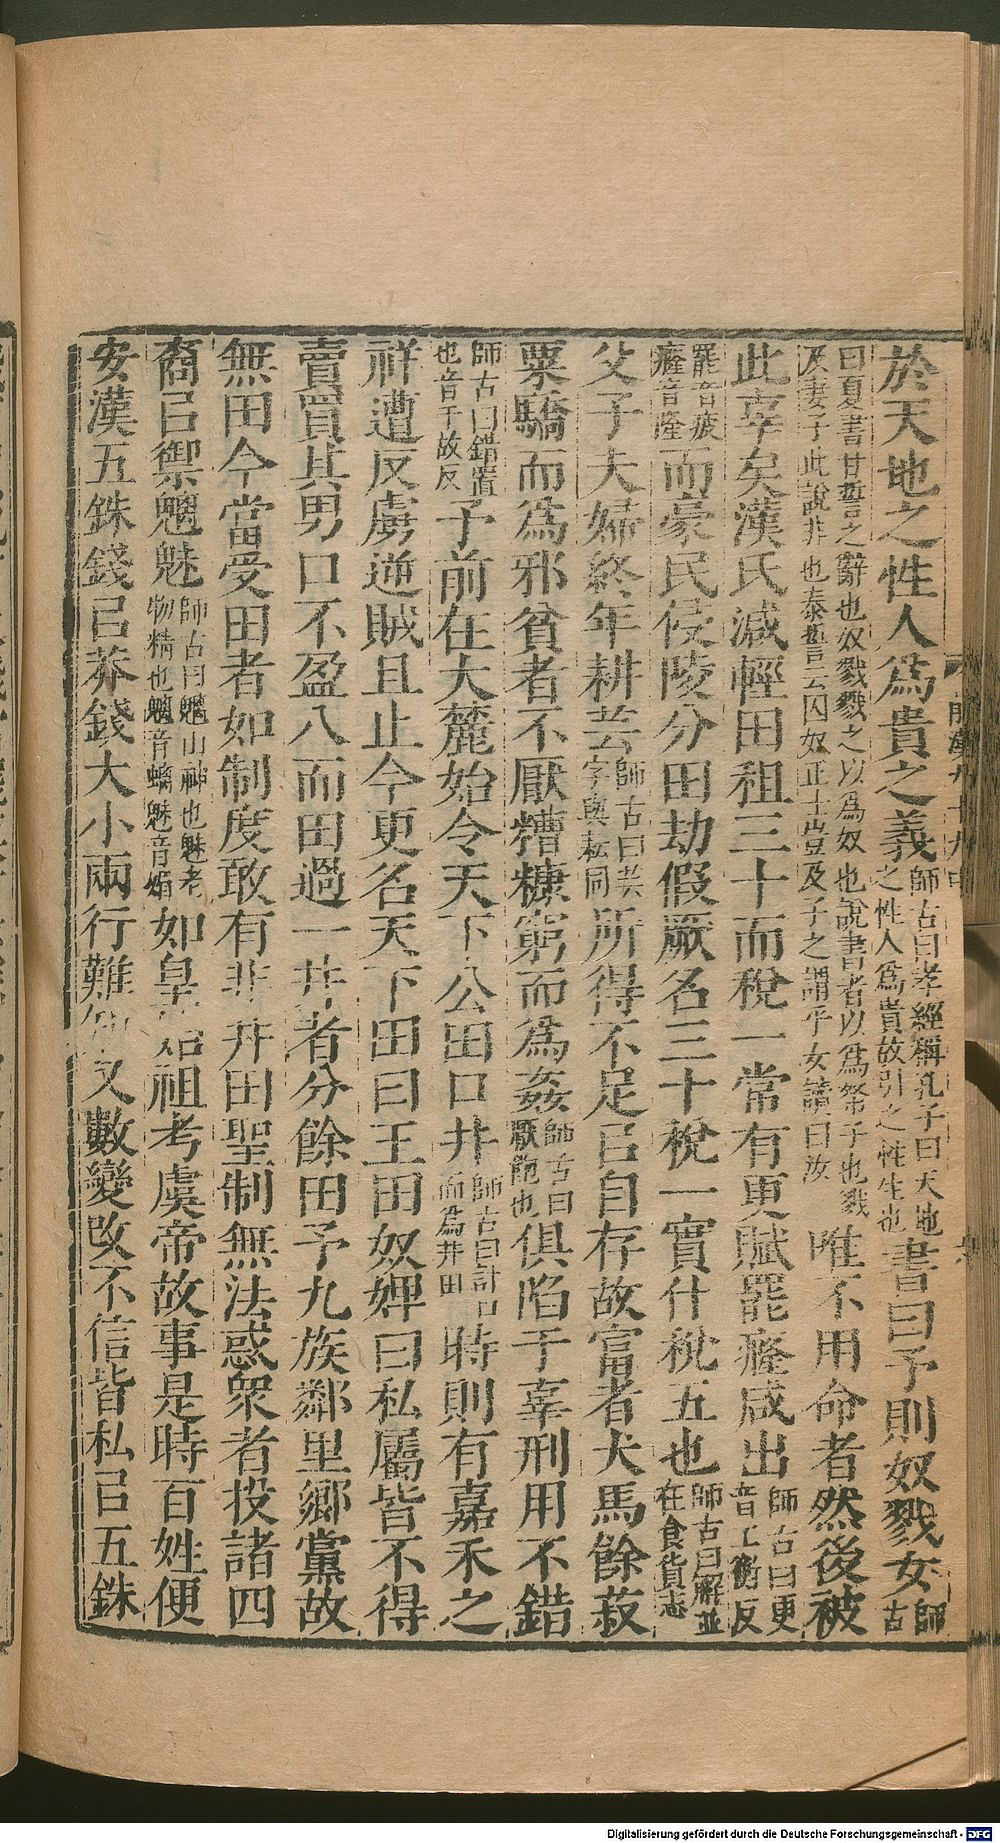 於天地之性人爲貴之義師古曰孝經稱孔子曰天地之性人爲貴故引之性生也書曰予則奴戮女師古
曰夏書甘誓之辭也奴戮戮之以爲奴也說書者以爲帑子也戮及妻子此說非也泰誓云囚奴正士豈及子之謂乎女讀曰汝唯不用命者然後被
此辜矣漢氏減輕田租三十而稅一常有更賦罷癃咸出師古曰更音工衡反
罷音疲癃音隆而豪民侵陵分田劫假厥名三十稅一實什稅五也師古曰解並在食貨志
父子夫婦終年耕芸師古曰芸字與耘同所得不足㠯自存故富者犬馬餘菽
粟驕而爲邪貧者不厭糟糠窮而爲姦師古曰厭飽也俱陷于辜刑用不錯
師古曰錯置也音千故反予前在大麓始令天下公田口井師古曰計口而爲井田時則有嘉禾之
祥遭反虜逆賊且止今更名天下田曰王田奴婢曰私屬皆不得
賣買其男口不盈八而田過一井者分餘田予九族鄰里鄉黨故
無田今當受田者如制度敢有非井田聖制無法惑衆者投諸四
裔㠯禦魑魅師古曰魑山神也魅老物精也魑音螭魅音媚如皇始祖考虞帝故事是時百姓便
安漢五銖錢㠯莽錢大小兩行難知又數變改不信皆私㠯五銖
前漢九十九中
Digitalisierung gefördert durch die Deutsche Forschungsgemeinschaft - DFG